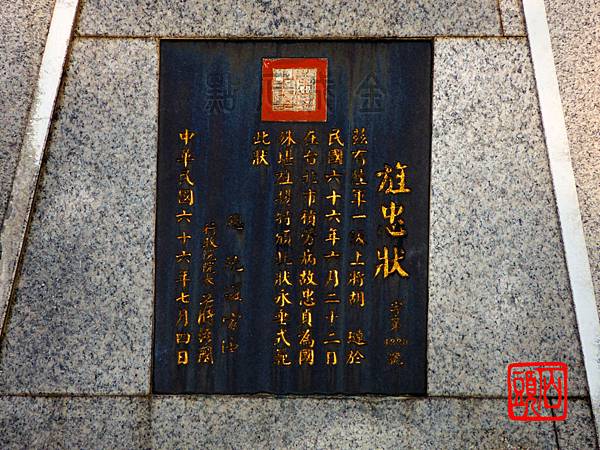 旌忠狀
字第4998號
茲有陸軍一級上將胡璉於
民國六十六年六月二十二日
在台北市積勞病故忠貞為國
殊堪旌揚特頒此狀永垂式範
此狀
總統嚴家淦
行政院院長蔣經國
中華民國六十六年七月四日